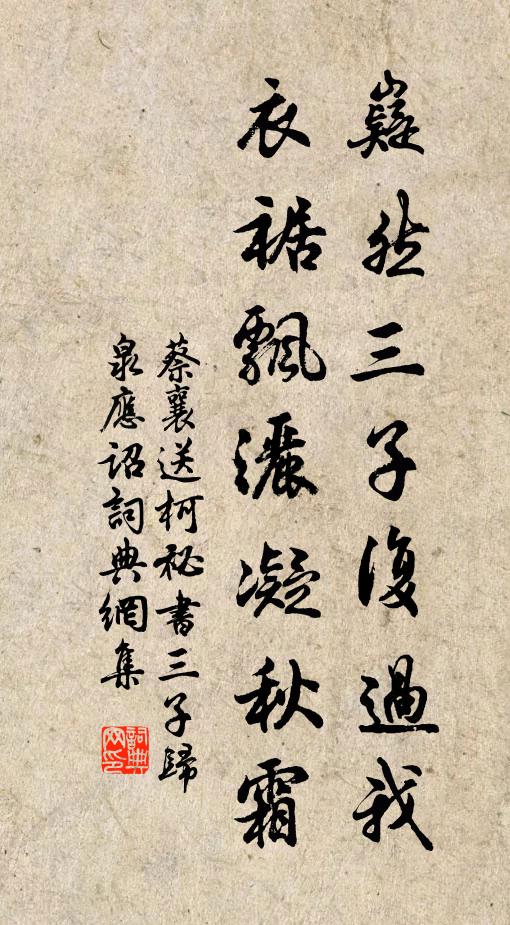 嶷然三子復過我
衣裾飄灑凝秋霜
蔡襄送柯祕書三子歸
泉應詔詞典網集
詞典網印